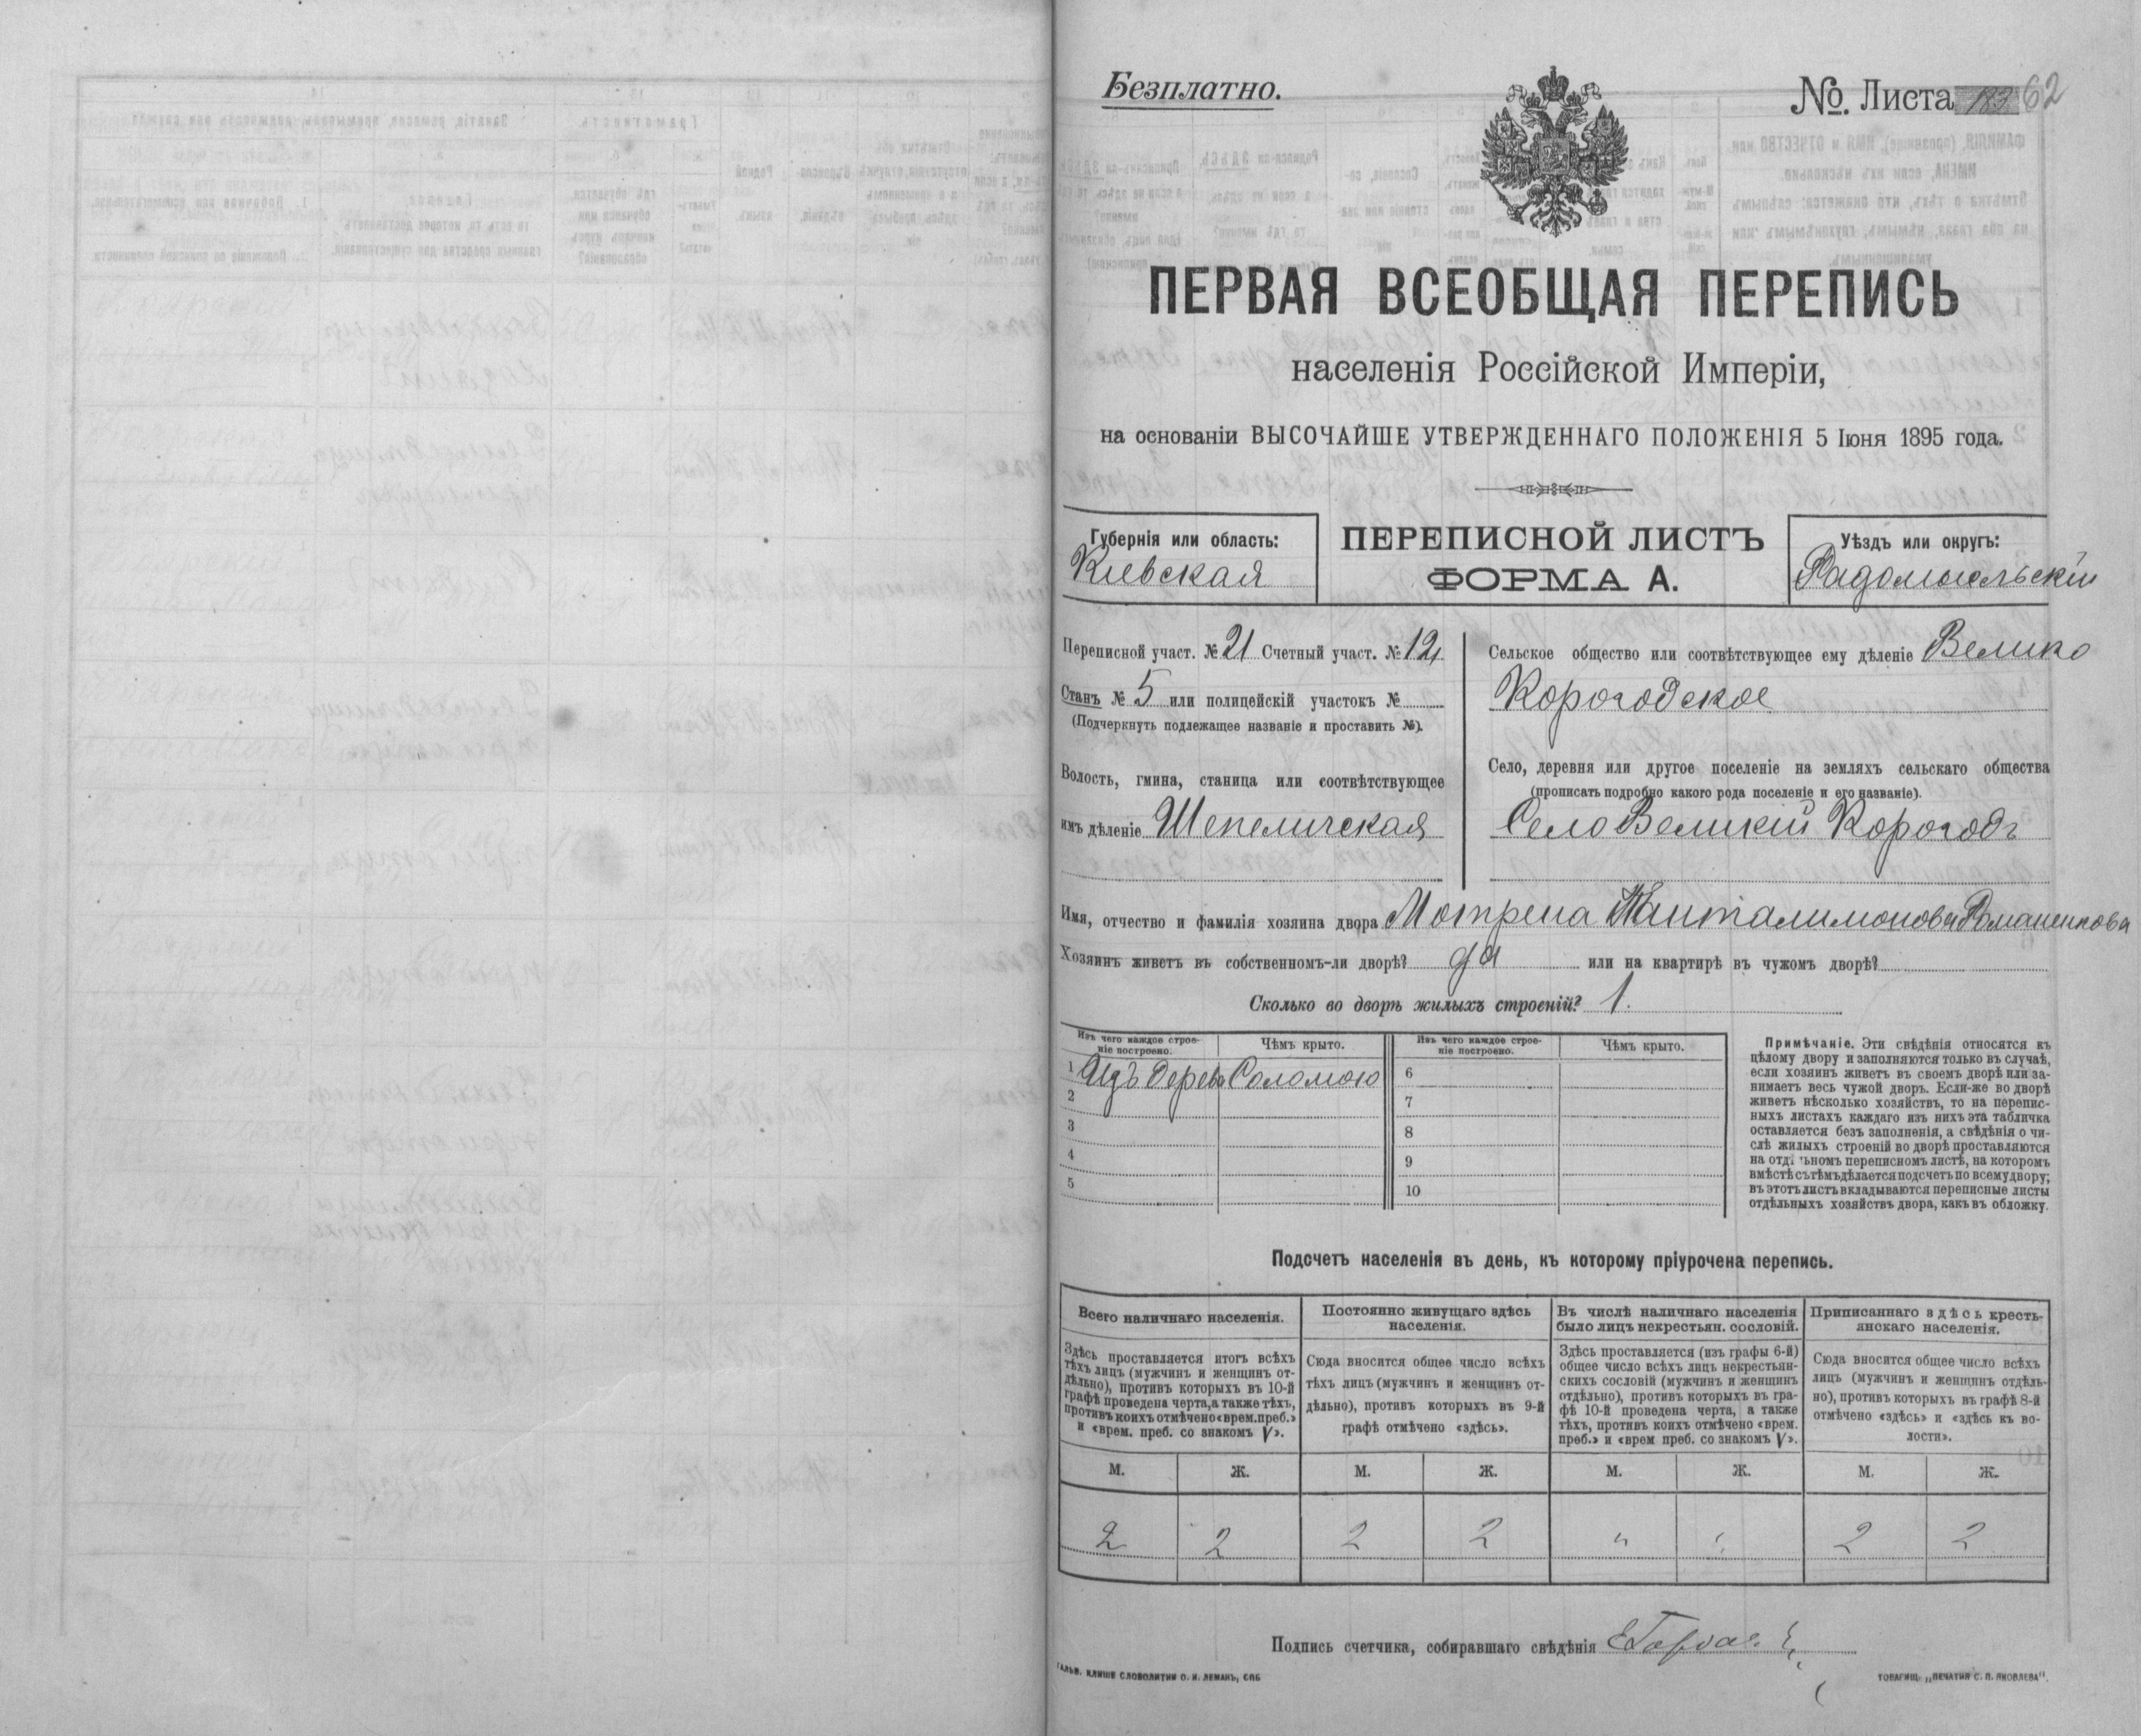 Безплатно.
№ Листа 183 62
ПЕРВАЯ ВСЕОБЩАЯ ПЕРЕПИСЬ
населенія Россійской Имперіи,
на основаніи ВЫСОЧАЙШЕ УТВЕРЖДЕННАГО ПОЛОЖЕНІЯ 5 Іюня 1895 года.
Губернія или область:
Киевская
ПЕРЕПИСНОЙ ЛИСТЪ
ФОРМА А.
Уѣздъ или округъ:
Радомысльскій
Переписной участ. № 21 Счетный участ. № 12
Станъ № 5 или полицейскій участокъ №
(Подчеркнуть подлежащее названіе и проставить №).
Волость, гмина, станица или соотвѣтствующее
имъ дѣленіе Шепеличская
Сельское общество или соотвѣтствующее ему дѣленіе Велико
Корогодское
Село, деревня или другое поселеніе на земляхъ сельскаго общества
(прописать подробно какого рода поселеніе и его названіе).
Село Великій Корогодъ
Имя, отчество и фамилія хозяина двора Мотрена Панталимонова Романенкова
Хозяинъ живетъ въ собственномъ-ли дворѣ? да или на квартирѣ въ чужомъ дворѣ?
Сколько во дворѣ жилыхъ строеній? 1.
Изъ чего каждое строе-
ніе построено.
Чѣмъ крыто.
Изъ чего каждое строе-
ніе построено.
Чѣмъ крыто.
1 Изъ дерева Соломою 6
2 7
3 8
4 9
5 10
Примѣчаніе. Эти свѣдѣнія относятся къ
цѣлому двору и заполняются только въ случаѣ,
если хозяинъ живетъ въ своемъ дворѣ или за-
нимаетъ весь чужой дворъ. Если-же во дворѣ
живетъ нѣсколько хозяйствъ, то на перепис-
ныхъ листахъ каждаго изъ нихъ эта табличка
оставляется безъ заполненія, а свѣдѣнія о чи-
слѣ жилыхъ строеній во дворѣ проставляются
на отдѣльномъ переписномъ листѣ, на которомъ
вмѣстѣ съ тѣмъ дѣлается подсчетъ по всему двору;
въ этотъ листъ вкладываются переписные листы
отдѣльныхъ хозяйствъ двора, какъ въ обложку.
Подсчетъ населенія въ день, къ которому пріурочена перепись.
Всего наличнаго населенія.
Здѣсь проставляется итогъ всѣхъ
тѣхъ лицъ (мужчинъ и женщинъ от-
дѣльно), противъ которыхъ въ 10-й
графѣ проведена черта, а также тѣхъ,
противъ коихъ отмѣчено «врем. преб.»
и «врем. преб. со знакомъ V».
Постоянно живущаго здѣсь
населенія.
Сюда вносится общее число всѣхъ
тѣхъ лицъ (мужчинъ и женщинъ от-
дѣльно), противъ которыхъ въ 9-й
графѣ отмѣчено «здѣсь».
Въ числѣ наличнаго населенія
было лицъ некрестьян. сословій.
Здѣсь проставляется (изъ графы 6-й)
общее число всѣхъ лицъ некрестьян-
скихъ сословій (мужчинъ и женщинъ
отдѣльно), противъ которыхъ въ гра-
фѣ 10-й проведена черта, а также
тѣхъ, противъ коихъ отмѣчено «врем.
преб.» и «врем преб. со знакомъ V».
Приписаннаго здѣсь кресть-
янскаго населенія.
Сюда вносится общее число всѣхъ
лицъ (мужчинъ и женщинъ отдѣль-
но), противъ которыхъ въ графѣ 8-й
отмѣчено «здѣсь» и «здѣсь къ во-
лости».
М. Ж. М. Ж. М. Ж. М. Ж.
2 2 2 2 " " 2 2
Подпись счетчика, собиравшаго свѣдѣнія
ГАЛЬВ. КЛИШЕ СЛОВОЛИТНИ О. И. ЛЕМАНЪ, СПБ
ТОВАРИЩ. „ПЕЧАТНЯ С. П. ЯКОВЛЕВА".